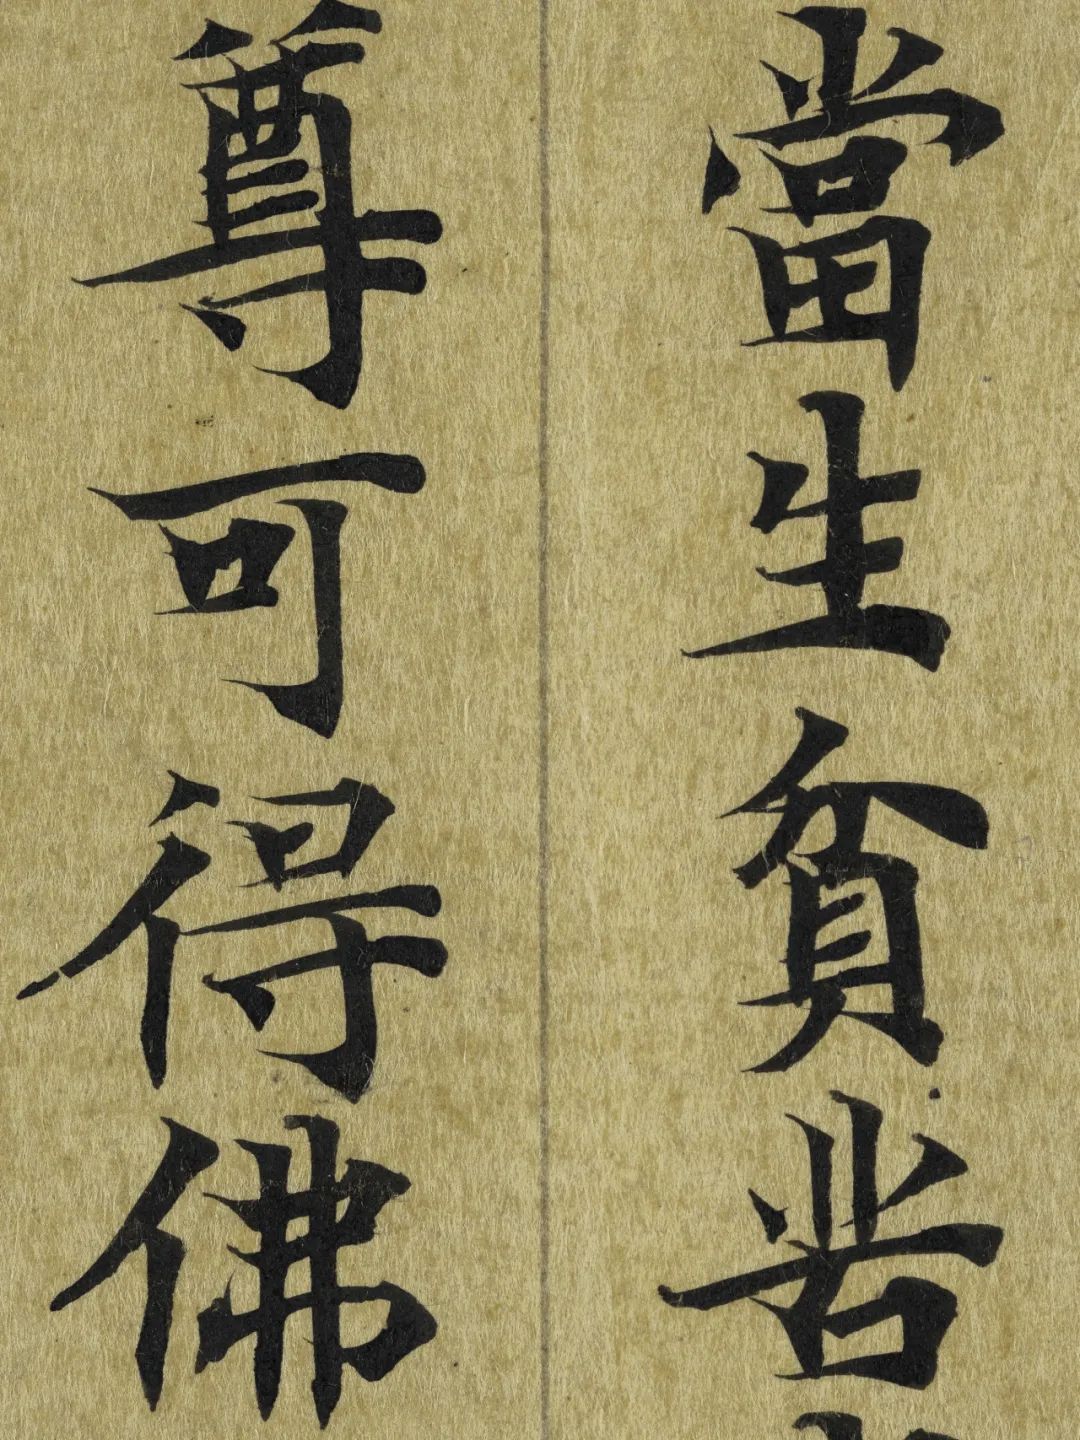 當生貧苦
尊可得佛